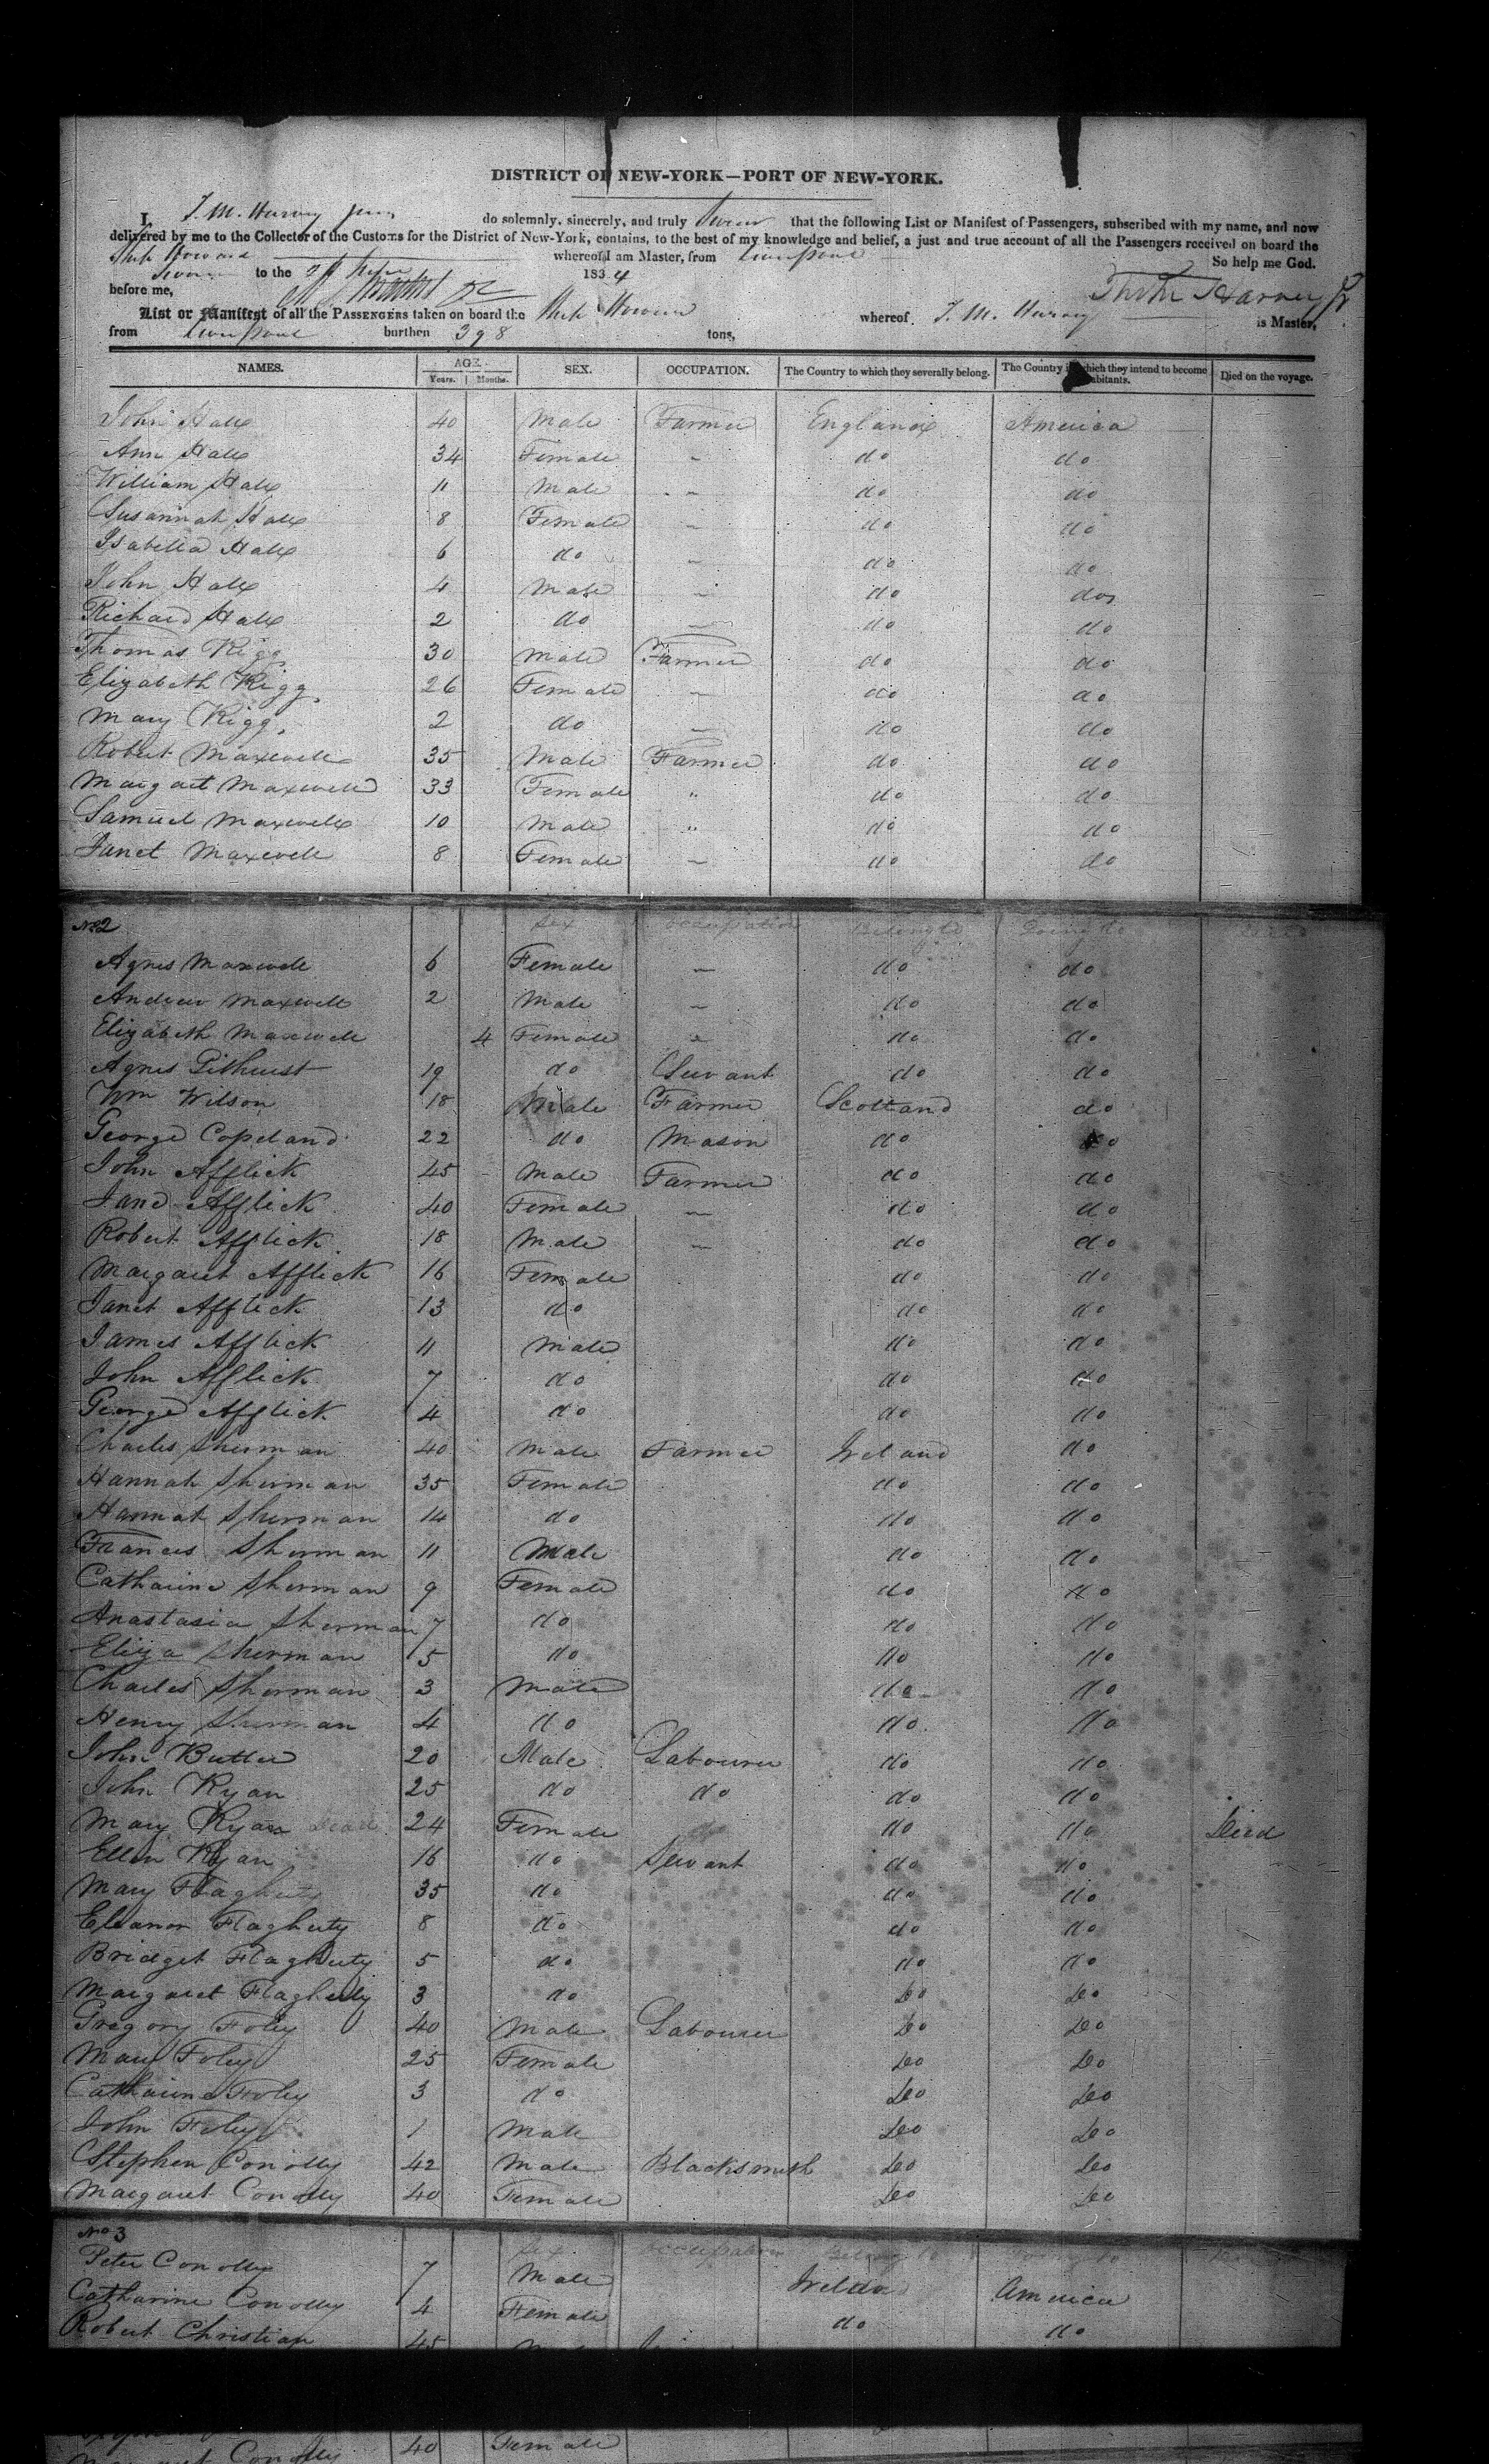 DISTRICT OF NEW-YORK—PORT OF NEW-YORK.
I, T. M. Harvey do solemnly, sincerely, and truly swear that the following List or Manifest of Passengers, subscribed with my name, and now
delivered by me to the Collector of the Customs for the District of New-York, contains, to the best of my knowledge and belief, a just and true account of all the Passengers received on board the
Ship whereof I am Master, from Liverpool So help me God.
Sworn to the 1834
before me,
List or Manifest of all the PASSENGERS taken on board the Ship whereof T. M. Harvey is Master,
from Liverpool burthen 398 tons,
NAMES. AGE. Years. Months. SEX. OCCUPATION. The Country to which they severally belong. The Country in which they intend to become inhabitants. Died on the voyage.
John Hall 40 Male Farmer England America
Ann Hall 34 Female - do do
William Hall 11 Male - do do
Susannah Hall 8 Female - do do
Isabella Hall 6 do - do do
John Hall 4 Male - do do
Richard Hall 2 do - do do
Thomas Rigg 30 Male Farmer do do
Elizabeth Rigg 26 Female - do do
Mary Rigg 2 do - do do
Robert Maxwell 35 Male Farmer do do
Margaret Maxwell 33 Female " do do
Samuel Maxwell 10 Male " do do
Janet Maxwell 8 Female - do do
No 2 Sex occupation Belong to Going to Died
Agnes Maxwell 6 Female - do do
Andrew Maxwell 2 Male - do do
Elizabeth Maxwell 4 Female - do do
Agnes 19 do Servant do do
Wm Wilson 18 Male Farmer Scotland do
George Copeland 22 do Mason do do
John Afflick 45 Male Farmer do do
Jane Afflick 40 Female - do do
Robert Afflick 18 Male - do do
Margaret Afflick 16 Female do do
Janet Afflick 13 do do do
James Afflick 11 Male do do
John Afflick 7 do do do
George Afflick 4 do do do
Charles Sherman 40 Male Farmer Ireland do
Hannah Sherman 35 Female do do
Hannah Sherman 14 do do do
Frances Sherman 11 Male do do
Catharine Sherman 9 Female do do
Anastasia Sherman 7 do do do
Eliza Sherman 5 do do do
Charles Sherman 3 Male do do
Henry Sherman 4 do do do
John Butler 20 Male Labourer do do
John Ryan 25 do do do do
Mary Ryan Dead 24 Female do do Died
Ellen Ryan 16 do Servant do do
Mary Flagherty 35 do do do
Eleanor Flagherty 8 do do do
Bridget Flagherty 5 do do do
Margaret Flagherty 3 do do do
Gregory Foley 40 Male Labourer do do
Mary Foley 25 Female do do
Catharine Foley 3 do do do
John Foley 1 Male do do
Stephen Conolly 42 Male Blacksmith do do
Margaret Conolly 40 Female do do
No 3 Sex occupation Belong to Going to
Peter Conolly 7 Male Ireland America
Catharine Conolly 4 Female do do
Robert Christian 45
40 Female
Conolly